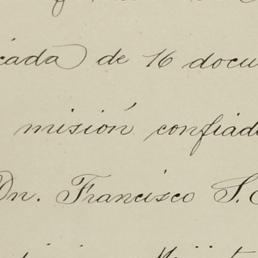 cada de 16 docu
misión confiad
Dn. Francisco S.